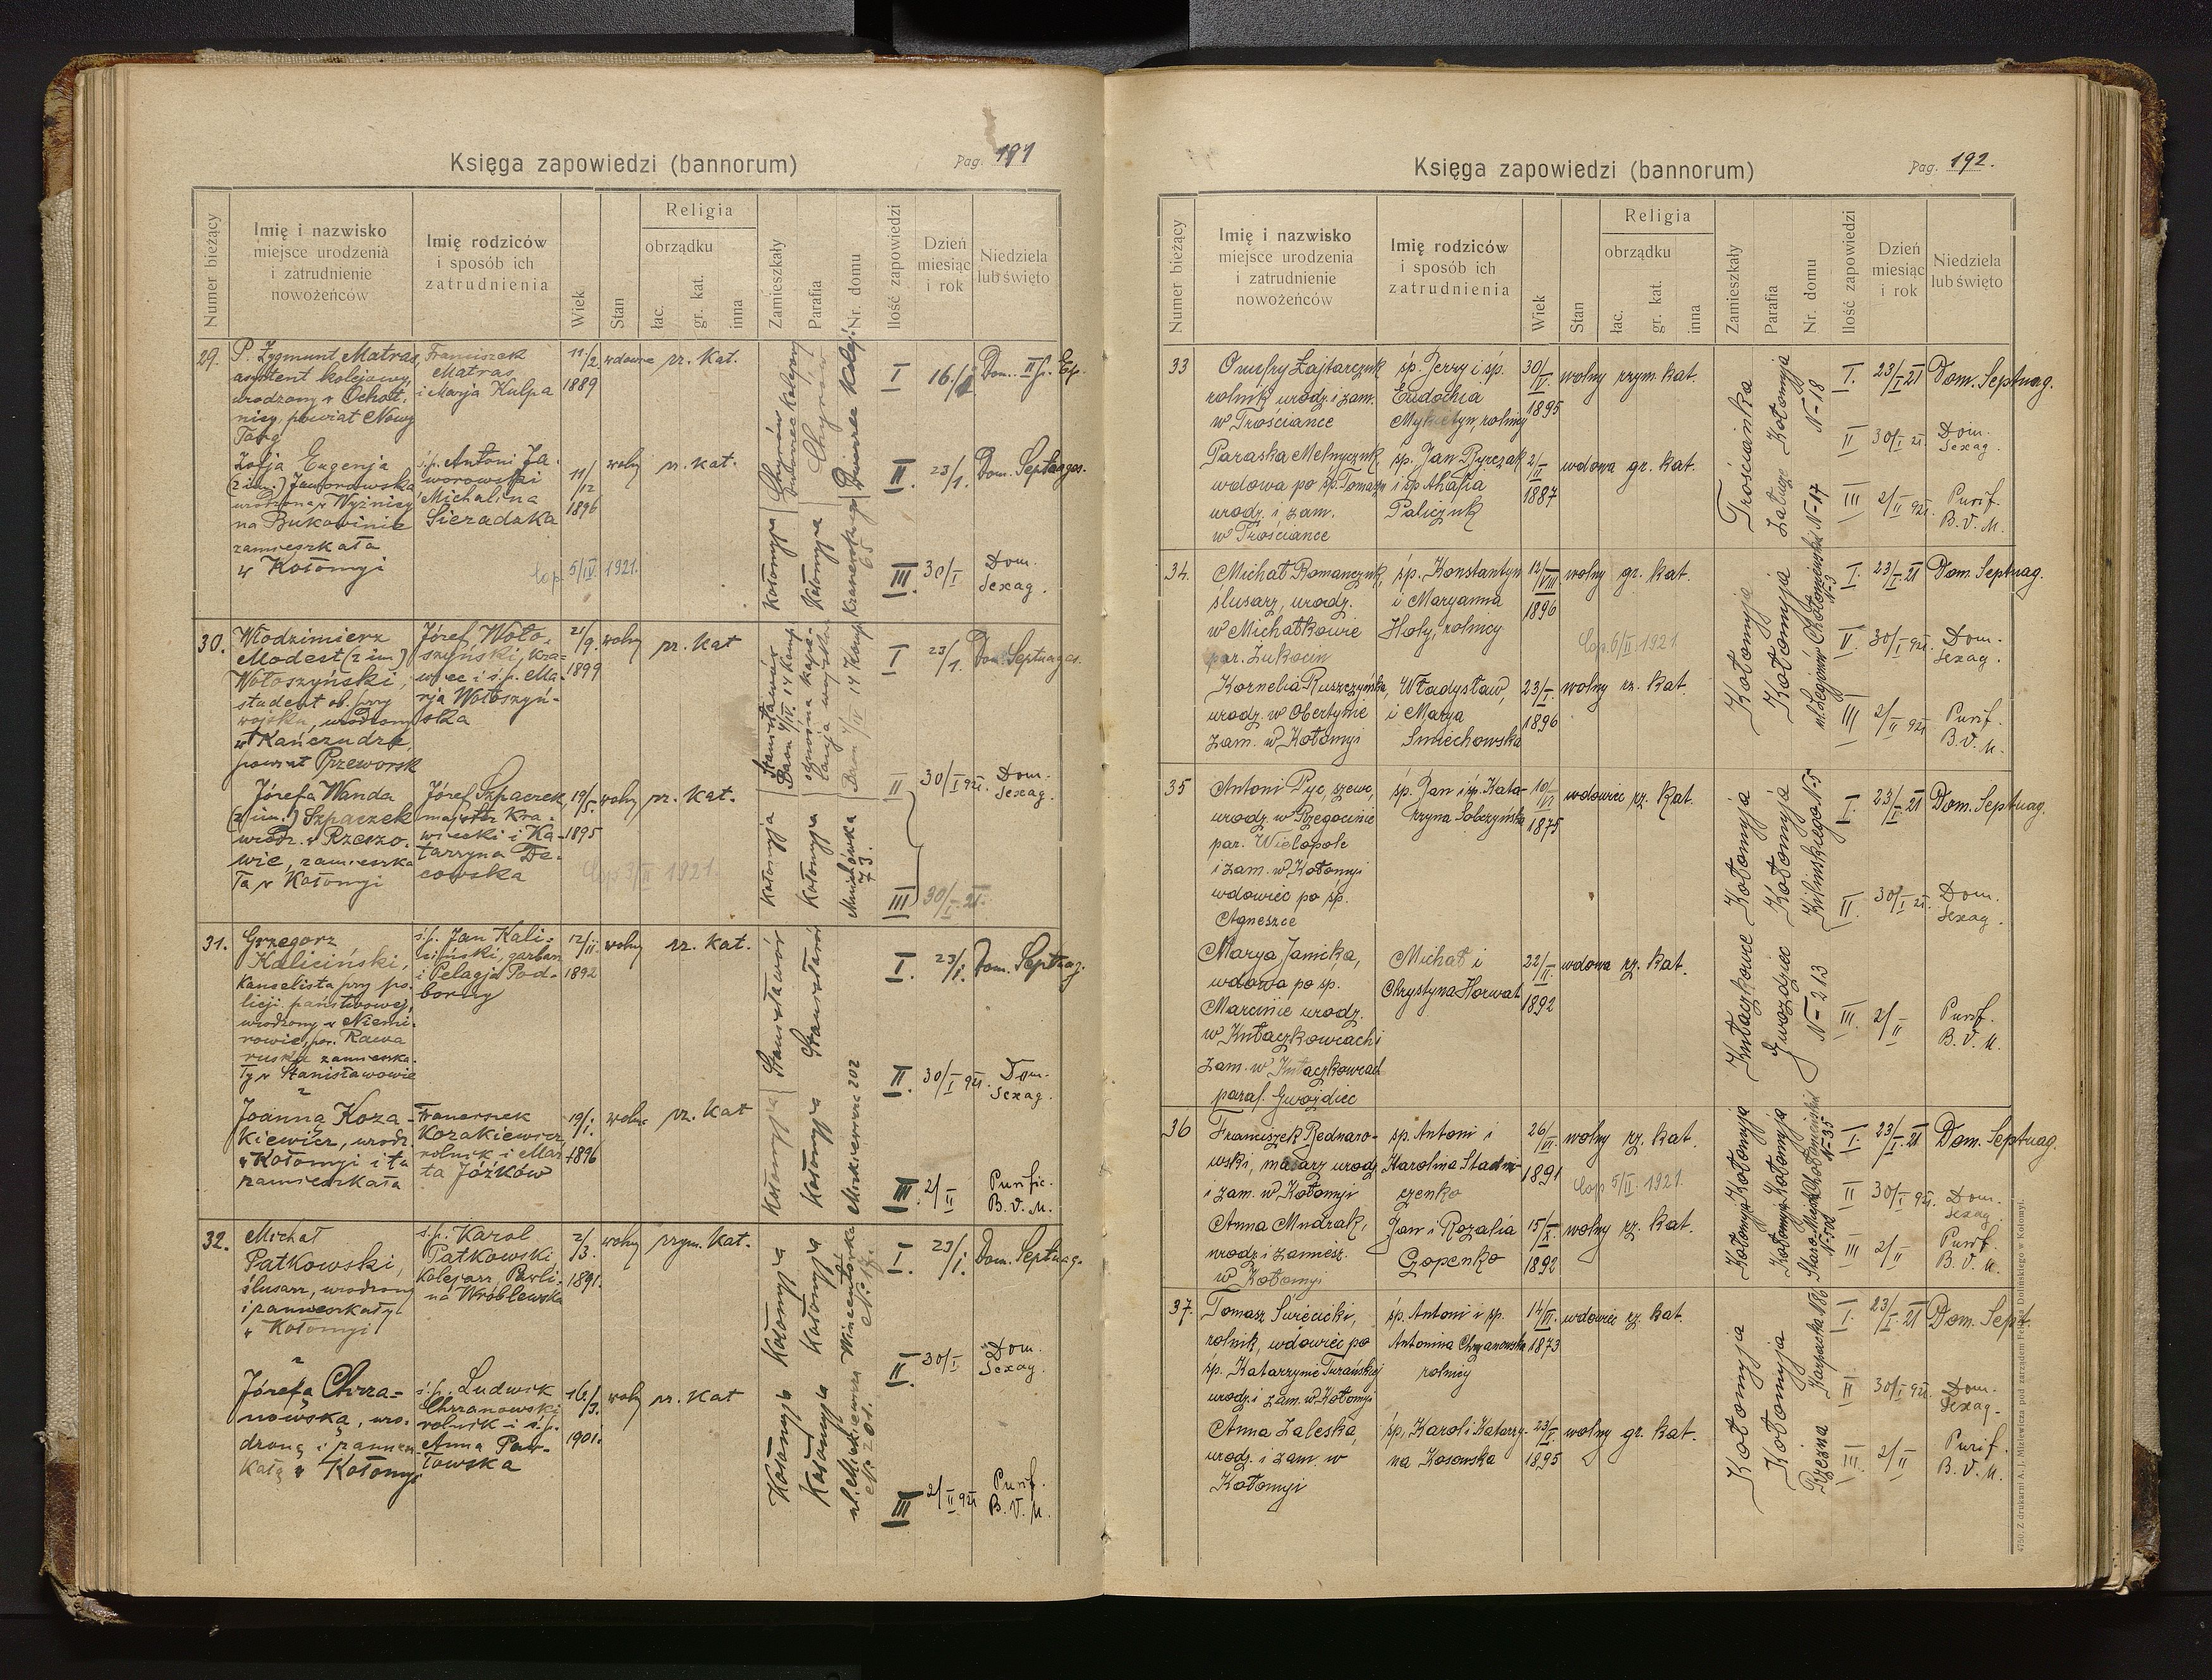 Księga zapowiedzi (bannorum)
Pag. 191
Numer bieżący
Imię i nazwisko
miejsce urodzenia
i zatrudnienie
nowożeńców
Imię rodziców
i sposób ich
zatrudnienia
Wiek
Stan
Religia
obrządku
łac.
gr. kat.
inna
Zamieszkały
Parafia
Nr. domu
Ilość zapowiedzi
Dzień
miesiąc
i rok
Niedziela
lub święto
29.
P. Zygmunt Matras,
asystent kolejowy,
urodzony w Ochot-
nicy, powiat Nowy
Targ
Franciszek
Matras
i Marja Kulpa
11/2
1889
rz. kat.
Chyrów
Chyrów
Dworzec kolej.
I 16./I Dom. II p. Ep.
Zofja Eugenja
(2 im.) Jaworowska
urodzona w Wyżnicy
na Bukowinie
zamieszkała
w Kołomyi
ś.p. Antoni Ja-
worowski
i Michalina
Sieradzka
11/12
1896
wolny
rz. kat.
Cop. 5/IV 1921.
Kołomyja
Kołomyja
Kraszewskiego
65
II. 23/1. Dom. Septuages.
III. 30/I Dom.
Sexag.
30.
Włodzimierz
Modest (2 im.)
Wołoszyński,
student ob. przy
wojsku, urodzony
w Kańczudze,
powiat Przeworsk
Józef Woło-
szyński, kra-
wiec i ś.p. Ma-
rja Wołoszyń-
ska
21/9.
1899
wolny
rz. kat
Stanisławów
I 23/1. Dom. Septuages.
Józefa Wanda
(2 im.) Szpaczek
urodz. w Rzeszo-
wie, zamieszka-
ła w Kołomyi
Józef Szpaczek
majster kra-
wiecki i Ka-
tarzyna De-
cowska
19/5.
1895
wolny
rz. kat.
Cop 3/II 1921
Kołomyja
Kołomyja
Mnichówka
73.
II 30/I 921. Dom.
Sexag.
III 30/I. 21.
31.
Grzegorz
Kaliciński,
kancelista przy po-
licji państwowej,
urodzony w Niemi-
rowie, pow. Rawa
ruska zamieszka-
ły w Stanisławowie
ś.p. Jan Kali-
ciński, garbarz
i Pelagja Pod-
borny
12/II.
1892
wolny
rz. kat.
Stanisławów
Stanisławów
I. 23/I. Dom. Septuag.
Joanna Koza-
kiewicz, urodz.
w Kołomyi i tu
zamieszkała
Franciszek
Kozakiewicz,
rolnik i Mar-
ta Jóźków
19/I.
1896
wolna
rz. kat
Kołomyja
Kołomyja
Mickiewicza 202
II. 30/I 921. Dom.
Sexag.
III. 2/II Purific.
B. V. M.
32.
Michał
Patkowski,
ślusarz, urodzony
i zamieszkały
w Kołomyi
ś.p. Karol
Patkowski
kolejarz, Pauli-
na Wróblewska
2/3.
1891.
wolny
rzym. kat.
Kołomyja
Kołomyja
Wincentówka
N. 17.
I. 23/I. Dom. Septuag.
Józefa Chrza-
nowska, uro-
dzona i zamiesz-
kała w Kołomyi
ś.p. Ludwik
Chrzanowski
rolnik i ś.p.
Anna Paw-
łowska
16./3.
1901.
wolny
rz. kat
Kołomyja
Kołomyja
ul. Mickiewicza
N. 201.
II. 30/I Dom.
Sexag.
III 2/II 921 Purif.
B. V. M.
Księga zapowiedzi (bannorum)
Pag. 192.
Numer bieżący
Imię i nazwisko
miejsce urodzenia
i zatrudnienie
nowożeńców
Imię rodziców
i sposób ich
zatrudnienia
Wiek
Stan
Religia
obrządku
łac.
gr. kat.
inna
Zamieszkały
Parafia
Nr. domu
Ilość zapowiedzi
Dzień
miesiąc
i rok
Niedziela
lub święto
33
Onufry Łajtarczuk
rolnik urodz. i zam.
w Trościance
śp. Jerzy i śp.
Eudochia
Mykietyn, rolnicy
30/IV.
1895
wolny rzym. kat.
Trościanka
Kołomyja
N-18
I. 23/I 21 Dom. Septuag.
Paraska Melnyczuk
wdowa po śp. Tomaszu
urodz. i zam.
w Trościance
śp. Jan Pyrczak
i śp Ahafia
Paliczuk
2/II
1887
wdowa gr. kat.
N-17
II 30/I 21. Dom.
Sexag.
III 2/II 921. Purif.
B. V. M.
34.
Michał Romanczuk,
ślusarz, urodz.
w Michałkowie
par. Żukocin
śp. Konstantyn
i Maryanna
Hoły, rolnicy
12/VIII
1896
wolny gr. kat.
Cop. 6/II 1921
Kołomyja
Kołomyja
I. 23/I 21 Dom. Septuag.
Kornelia Ruszczyńska,
urodz. w Obertynie
zam. w Kołomyi
Władysław,
i Marya
Śmiechowska
23/I.
1896
wolny rz. kat.
II. 30/I 921. Dom.
Sexag.
III 2/II 921 Purif.
B. V. M.
35
Antoni Pyc, szewc,
urodz. w Rzegocinie
par. Wielopole
i zam. w Kołomyi
wdowiec po śp.
Agneszce
śp. Jan i śp. Kata-
rzyna Sobczyńska
10/VI
1875
wdowiec rz. kat.
Kołomyja
Kołomyja
Kilinskiego N-5
I. 23/I 21 Dom. Septuag.
II. 30/I 21. Dom.
Sexag.
Marya Janicka,
wdowa po śp.
Marcinie urodz.
w Kułaczkowcach i
zam. w Kułaczkowcach
paraf. Gwoździec
Michał i
Chrystyna Horwat
22/II.
1892
wdowa rz. kat.
Kułaczkowce
Gwoździec
N-213
III. 2/II Purif.
B. V. M.
36
Franciszek Bednaro-
wski, masarz urodz.
i zam. w Kołomyi
śp. Antoni i
Karolina Stadni-
czenko
26/VII.
1891
wolny rz. kat.
Cop 5/II 1921.
Kołomyja
Kołomyja
N-35
I. 23/I. 21 Dom. Septuag.
Anna Mudrak,
urodz i zamiesz.
w Kołomyi
Jan i Rozalia
Gopenko
15/X.
1892
wolny rz. kat.
Kołomyja
Kołomyja
II 30/I 921. Dom.
Sexag.
III 2/II Purif.
B. V. M.
37.
Tomasz Święcicki,
rolnik, wdowiec po
śp. Katarzynie Turańskiej
urodz. i zam. w Kołomyi
śp. Antoni i śp.
Antonina Chrzanowska
rolnicy
14/VI.
1873
wdowiec rz. kat.
Karpacka
I. 23/I. 21 Dom. Sept.
Anna Zaleska,
urodz. i zam. w
Kołomyi
śp. Karol i Katarzy-
na Kosowska
23/I
1895
wolny gr. kat.
Kołomyja
Kołomyja
II 30/I 921. Dom.
Sexag.
III. 2/II Purif.
B. V. M.
4750. Z drukarni A. J. Miziewicza pod zarządem Feliksa Dolińskiego w Kołomyi.